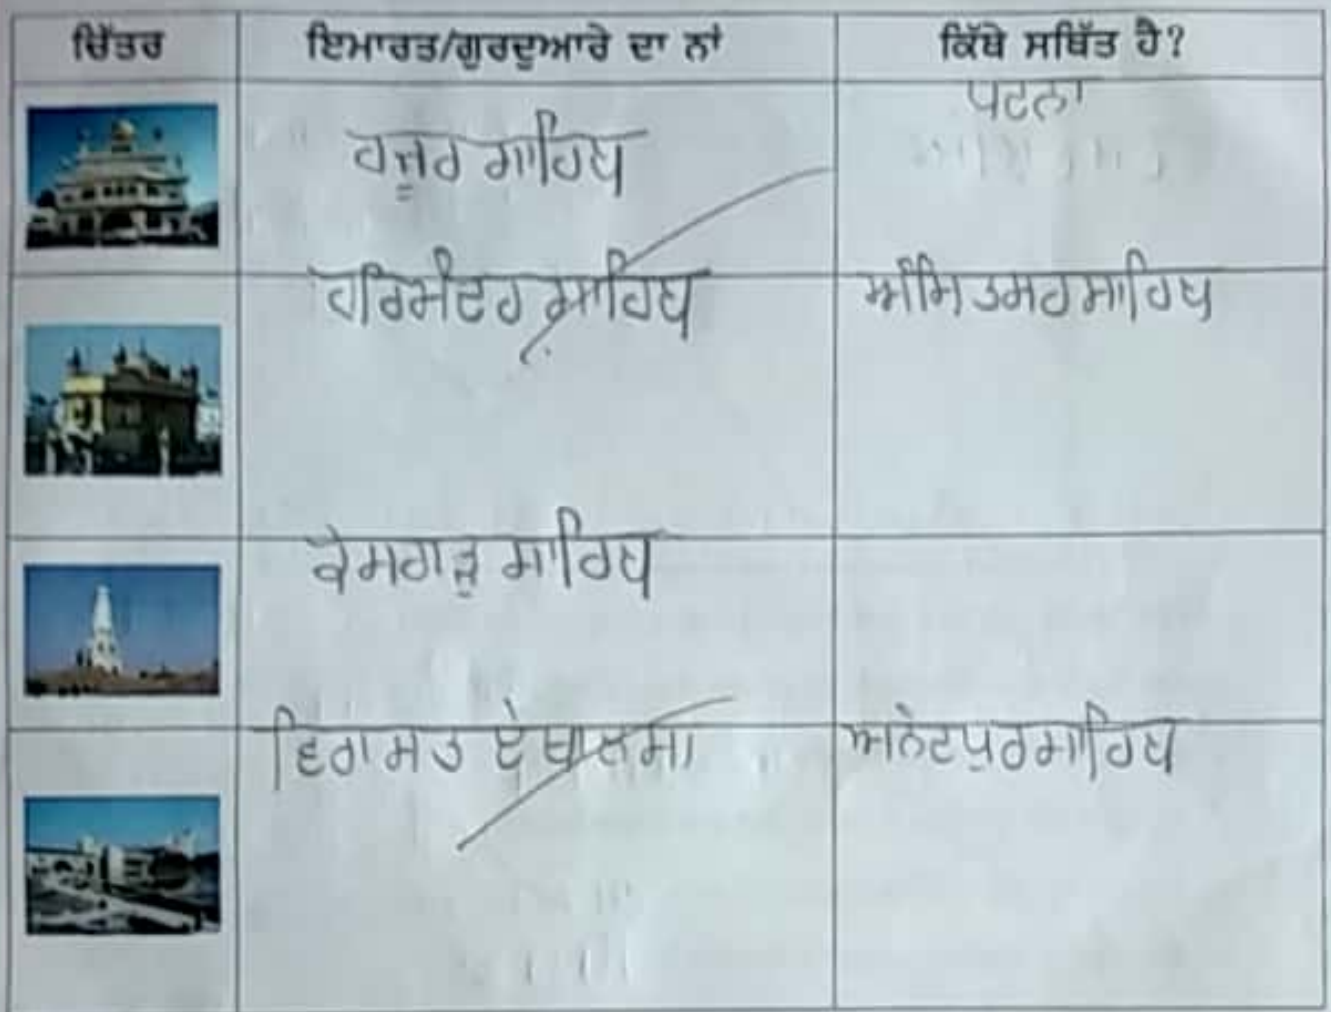 ਚਿੱਤਰ ਇਮਾਰਤ/ਗੁਰਦੁਆਰੇ ਦਾ ਨਾਂ ਕਿੱਥੇ ਸਥਿੱਤ ਹੈ?
ਹਜ਼ੂਰ ਸਾਹਿਬ ਪਟਨਾ
ਹਰਿਮੰਦਰ ਸਾਹਿਬ ਅੰਮਿਤਸਰ ਸਾਹਿਬ
ਕੇਸਗੜ੍ਹ ਸਾਹਿਬ
ਵਿਰਾਸਤ ਏ ਖਾਲਸਾ ਅਨੰਦਪੁਰ ਸਾਹਿਬ